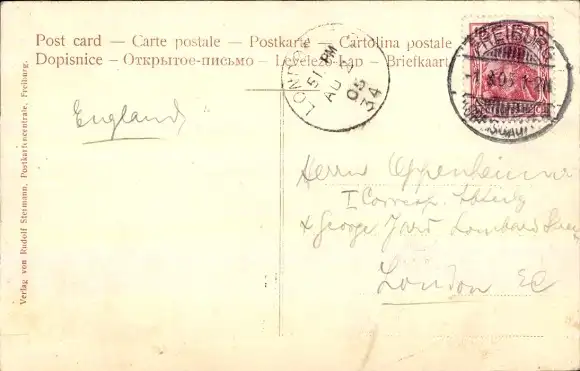 Post card — Carte postale — Postkarte — Cartolina postale
Dopisnice — Открытое-письмо — Levelező-Lap — Briefkaart
LONDON
5 PM
AU
05
34
FREIBURG
10
England
Herrn Oppenheimer
I Corresp.
George Yard Lombard
London EC
Verlag von Rudolf Stermann, Postkartencentrale, Freiburg.